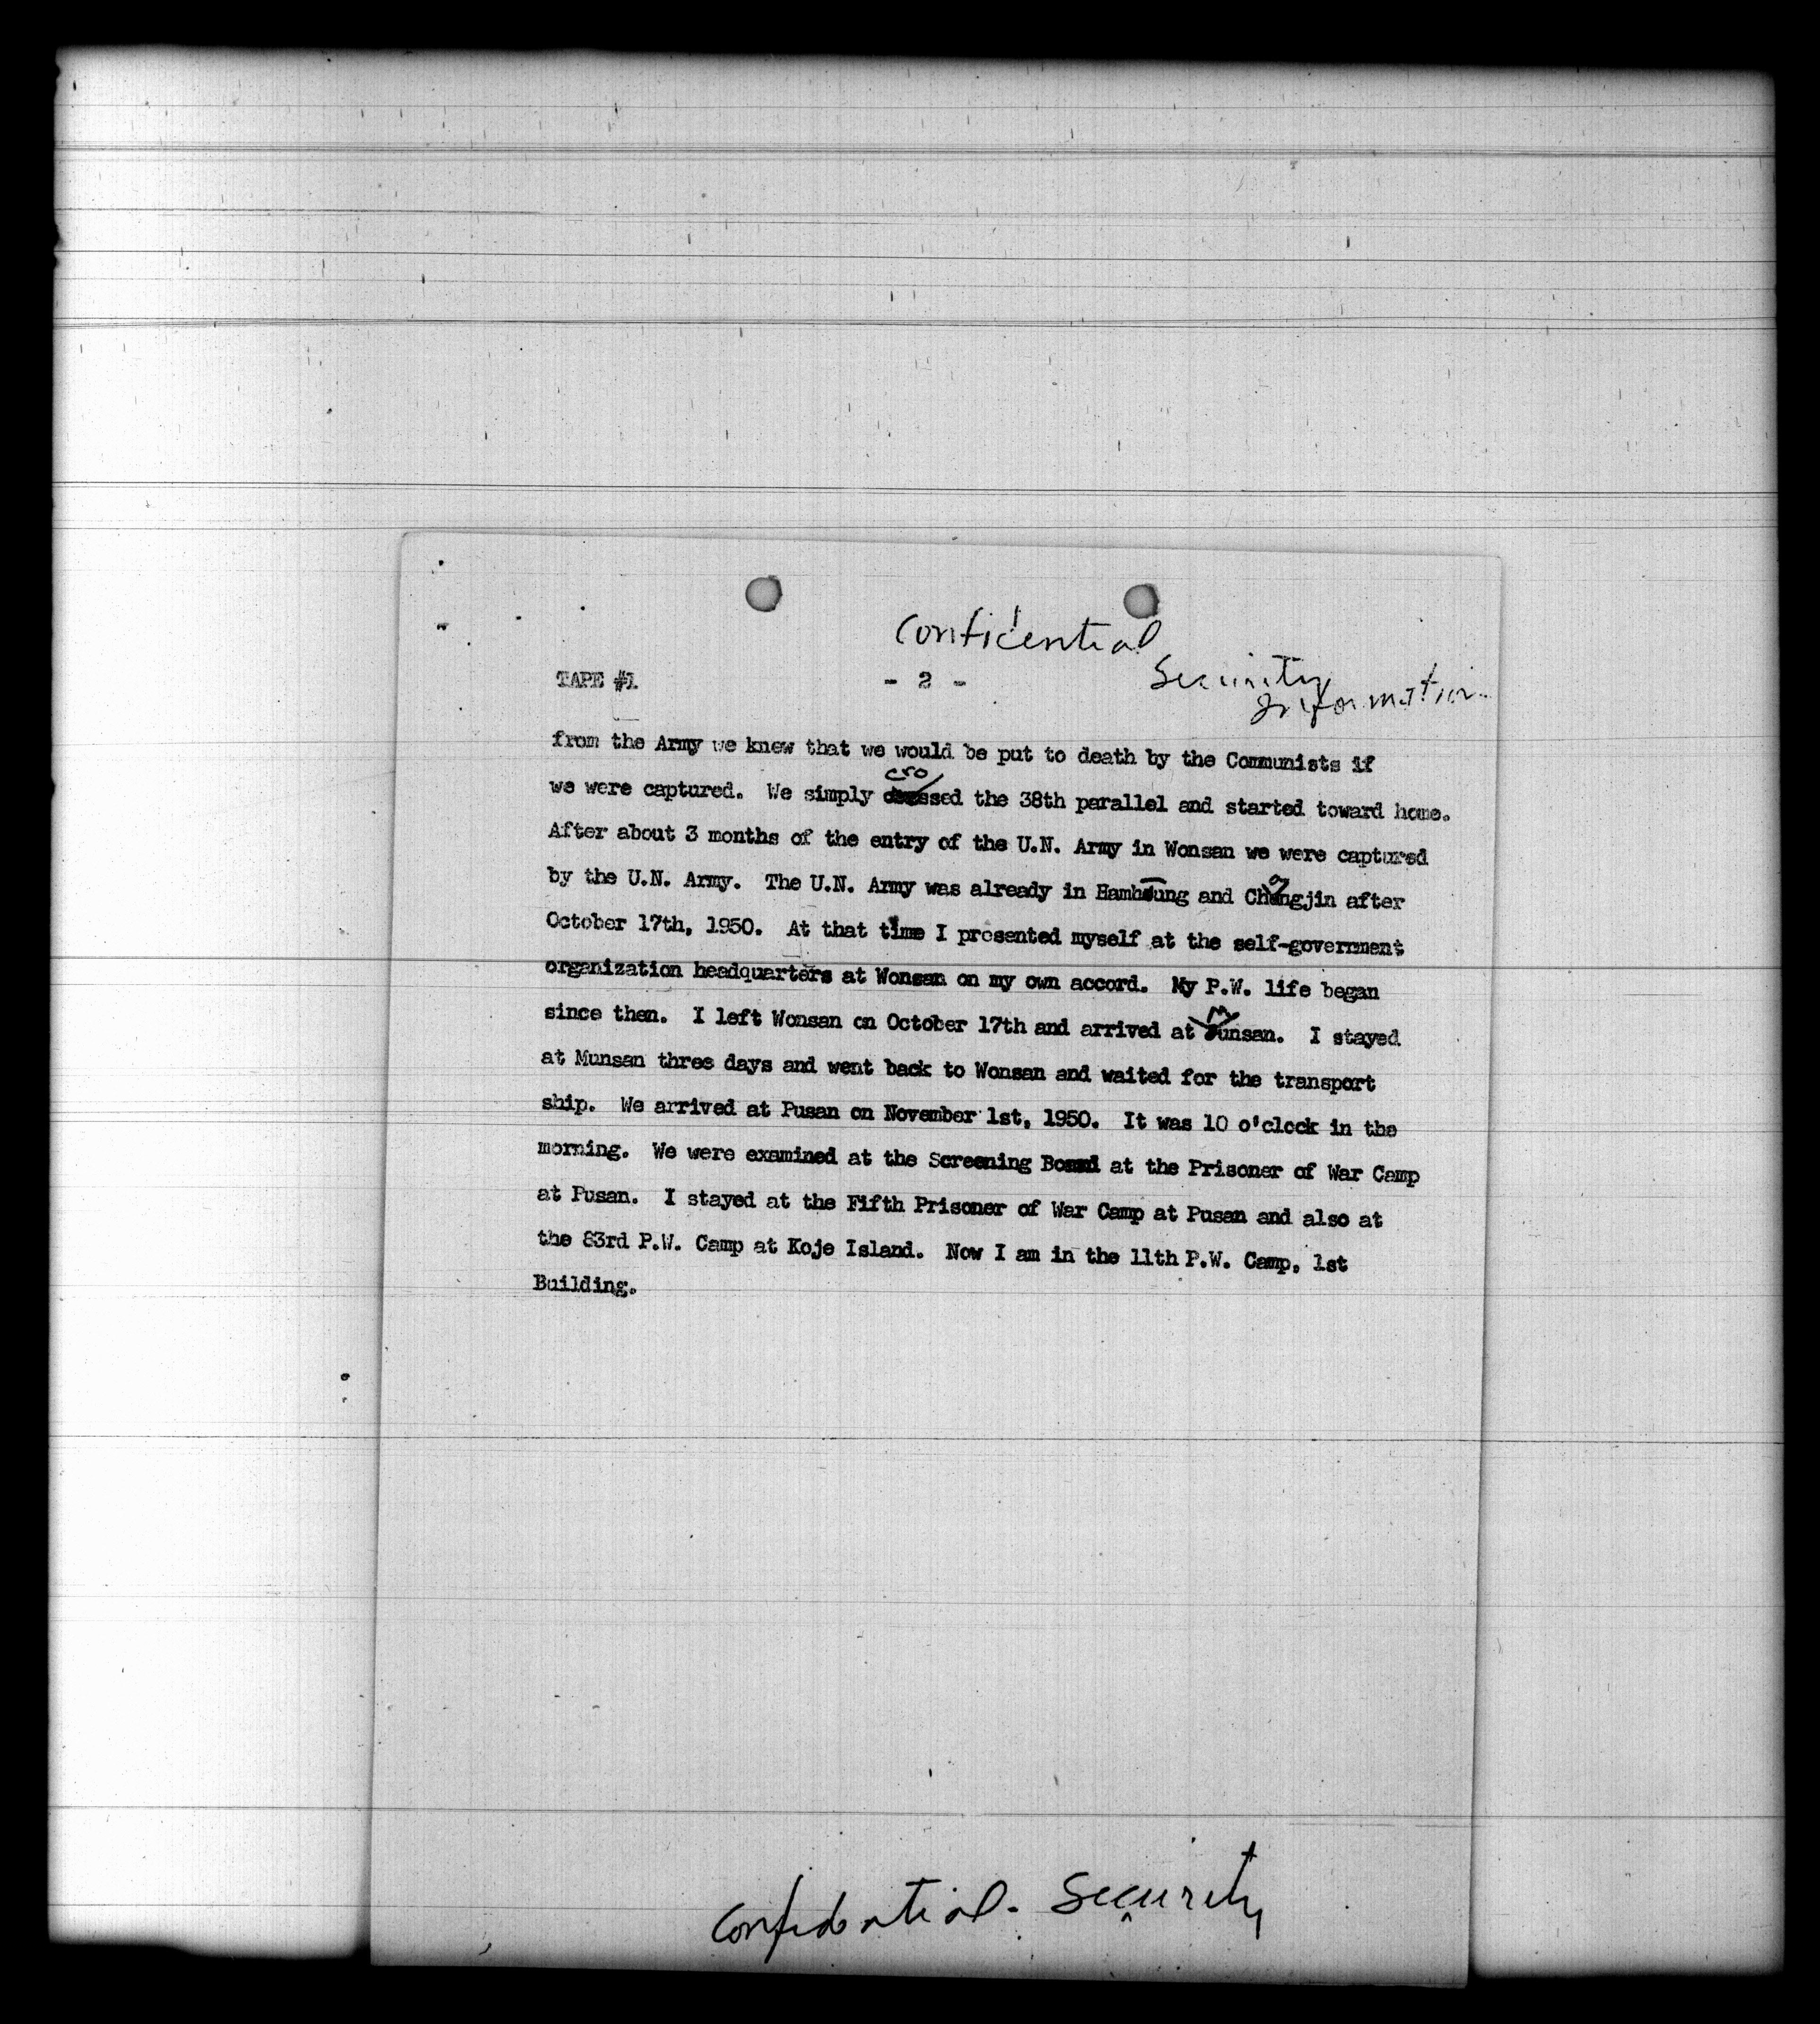 Confidential
Security
Information
TAPE #1 - 2 -
from the Army we knew that we would be put to death by the Communists if
we were captured. We simply crossed the 38th parallel and started toward home.
After about 3 months of the entry of the U.N. Army in Wonsan we were captured
by the U.N. Army. The U.N. Army was already in Hamheung and Changjin after
October 17th, 1950. At that time I presented myself at the self-government
organization headquarters at Wonsan on my own accord. My P.W. life began
since then. I left Wonsan on October 17th and arrived at Munsan. I stayed
at Munsan three days and went back to Wonsan and waited for the transport
ship. We arrived at Pusan on November 1st, 1950. It was 10 o'clock in the
morning. We were examined at the Screening Board at the Prisoner of War Camp
at Pusan. I stayed at the Fifth Prisoner of War Camp at Pusan and also at
the 83rd P.W. Camp at Koje Island. Now I am in the 11th P.W. Camp, 1st
Building.
Confidential. Security